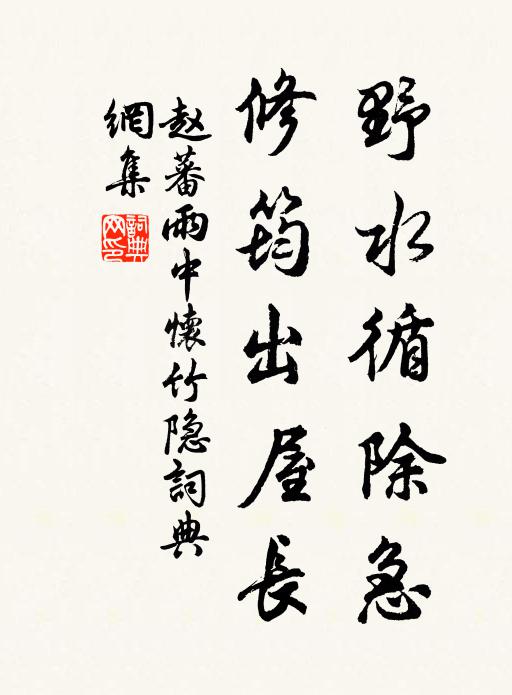 野水循除急
修筠出屋長
赵蕃雨中懷竹隐詞典
網集
詞典
网印